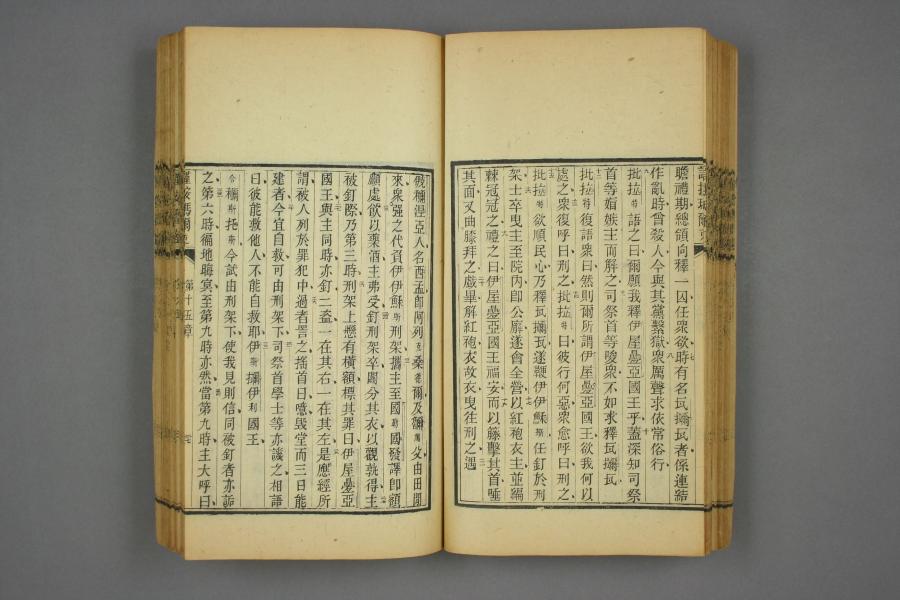 瞻禮期總領向釋一囚任衆欲時有名者係連諦
作亂時曾殺人今與其黨繫獄衆厲聲求依常俗行
批拉特語之曰爾願我釋伊屋國王乎蓋深知司祭
首等媢嫉主而解之司祭首等唆衆不如求釋
批拉特復語衆曰然則爾所謂伊屋國王欲我何以
處之衆復呼曰刑之批拉特曰彼行何惡衆愈呼曰刑之
批拉特欲順民心乃釋遂鞭伊伊穌斯任釘於刑
架士卒曳主至院內即公廨遂會全營以紅袍衣主並編
棘冠冠之禮之曰伊屋國王福安而以籐擊其首唾
其面又曲膝拜之戲畢解紅袍衣故衣曳往刑之遇
人名西孟即阿列桑德爾及父由田間
來衆强之代負伊伊穌斯刑架攜主至國發譯即額
顱處飲以藥酒主弗受釘刑架卒鬮分其衣以觀孰得主
被釘際乃第三時刑架上懸有橫額標其罪曰伊屋
國王與主同時亦釘二盜一在其右一在其左是應經所
謂被人列於罪犯中過者詈之搖首曰噫毀堂而三日能
建者今宜自救可由刑架下司祭首學士等亦譏之相語
曰彼能救他人不能自救耶伊斯伊利國王
合穪斯托斯今試由刑架下使我見則信同被釘者亦詬
之第六時徧地晦冥至第九時亦然當第九時主大呼曰
第十五章